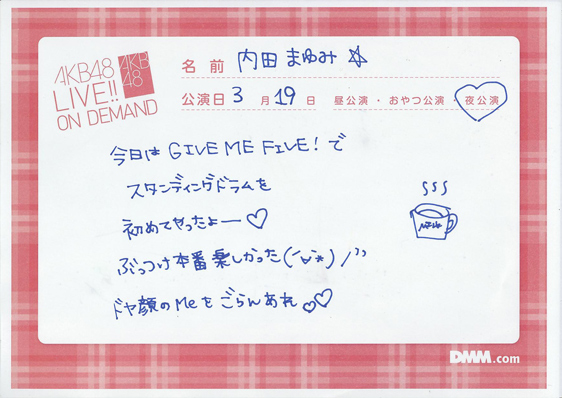 AKB48
LIVE!!
ON DEMAND
AKB
48
名前 内田 まゆみ☆
公演日 3月19日 昼公演・おやつ公演・夜公演
今日は GIVE ME FIVE! で
スタンディングドラムを
初めてやったよー♡
ぶっつけ本番楽しかった(´ڡ`*)ノ"
ドヤ顔のMeをごらんあれ♡♡
DMM.com